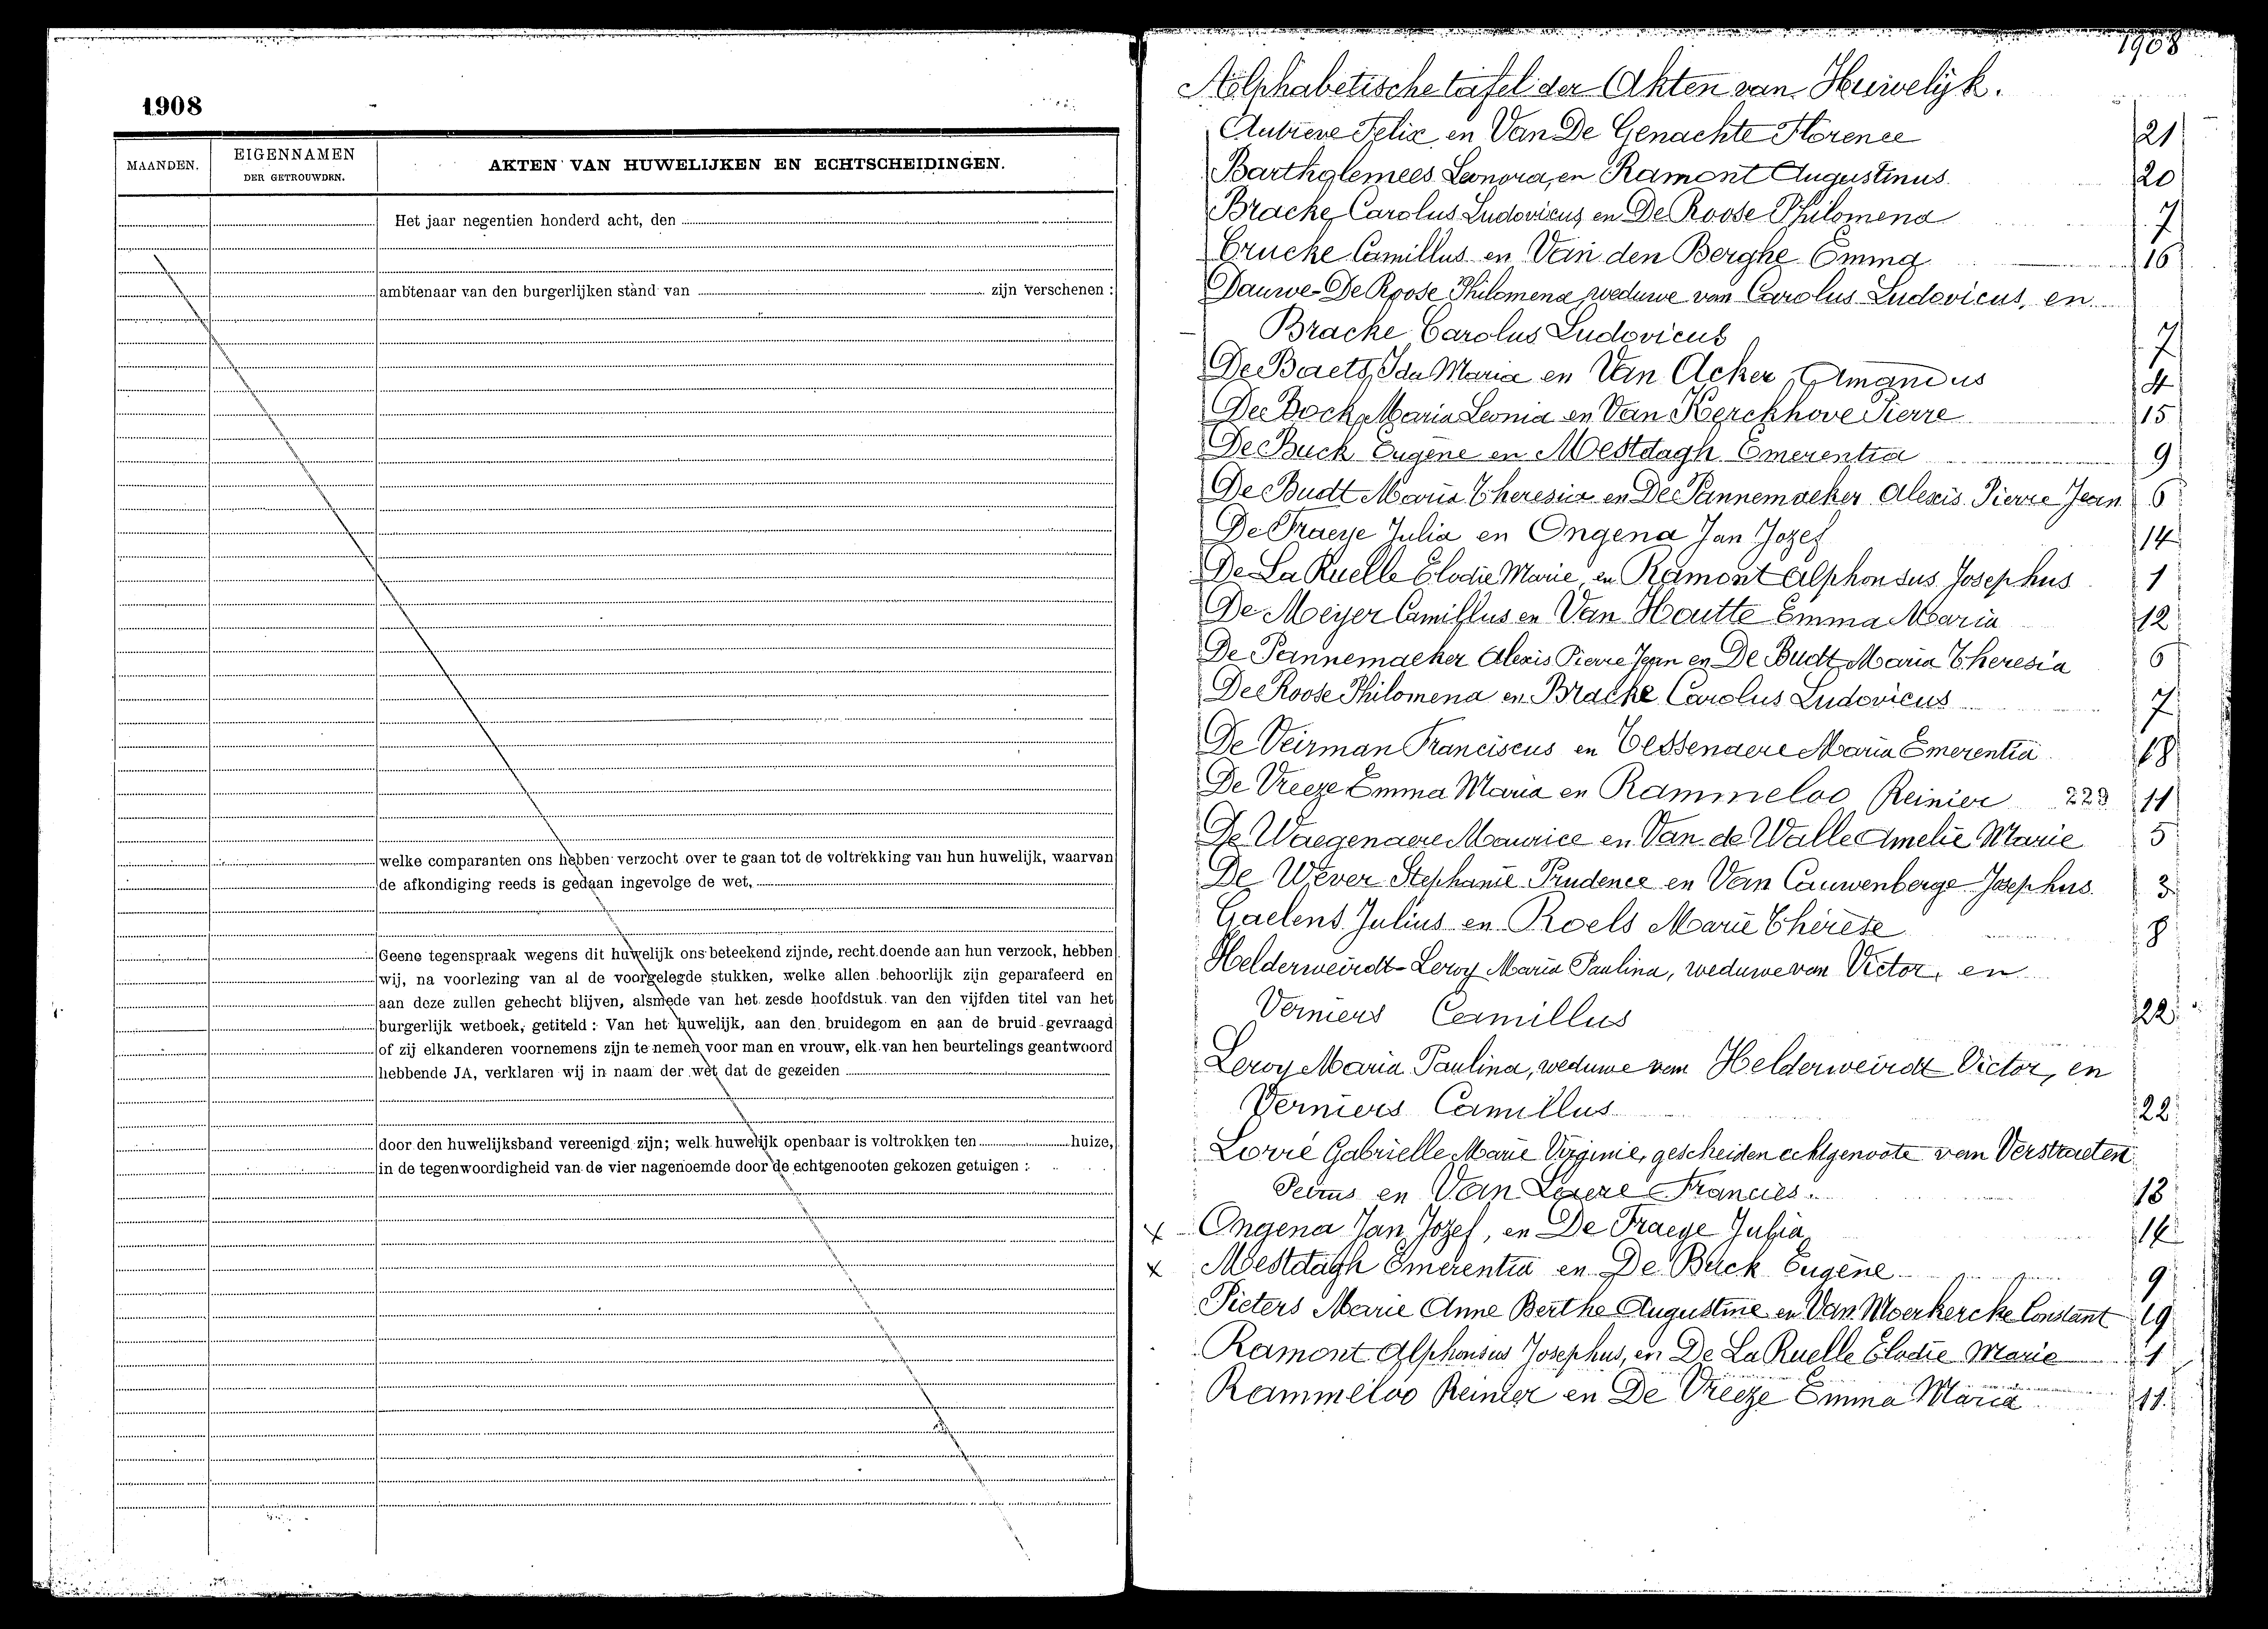 1908
MAANDEN.
EIGENNAMEN
DER GETROUWDEN.
AKTEN VAN HUWELIJKEN EN ECHTSCHEIDINGEN.
Het jaar negentien honderd acht, den
ambtenaar van den burgerlijken stand van zijn verschenen :
welke comparanten ons hebben verzocht over te gaan tot de voltrekking van hun huwelijk, waarvan
de afkondiging reeds is gedaan ingevolge de wet,
Geene tegenspraak wegens dit huwelijk ons beteekend zijnde, recht doende aan hun verzoek, hebben
wij, na voorlezing van al de voorgelegde stukken, welke allen behoorlijk zijn geparafeerd en
aan deze zullen gehecht blijven, alsmede van het zesde hoofdstuk van den vijfden titel van het
burgerlijk wetboek, getiteld : Van het huwelijk, aan den bruidegom en aan de bruid gevraagd
of zij elkanderen voornemens zijn te nemen voor man en vrouw, elk van hen beurtelings geantwoord
hebbende JA, verklaren wij in naam der wet dat de gezeiden
door den huwelijksband vereenigd zijn; welk huwelijk openbaar is voltrokken ten huize,
in de tegenwoordigheid van de vier nagenoemde door de echtgenooten gekozen getuigen :
1908
Alphabetische tafel der Akten van Huwelijk.
Felix en Van De Genachte Florence 21
Bartholemees Leonora, en Ramont Augustinus 20
Bracke Carolus Ludovicus, en De Roose Philomena 7
Crucke Camillus en Van den Berghe Emma 16
Dauwe-De Roose Philomena weduwe van Carolus Ludovicus, en
Bracke Carolus Ludovicus 7
De Baets Ida Maria en Van Acker Amandus 4
De Bock Maria Leonia en Van Kerckhove Pierre 15
De Buck Eugène en Mestdagh Emerentia 9
De Budt Maria Theresia en De Pannemaeker Alexis Pierre Jean 6
De Fraeye Julia en Ongena Jan Jozef 14
De La Ruelle Elodie Marie, en Ramont Alphonsus Josephus 1
De Meyer Camillus en Van Houtte Emma Maria 12
De Pannemaeker Alexis Pierre Jean en De Budt Maria Theresia 6
De Roose Philomena en Bracke Carolus Ludovicus 7
De Veirman Franciscus en Tessenaere Maria Emerentia 18
De Vreeze Emma Maria en Rammeloo Reinier 229 11
De Waegenaere Maurice en Van de Walle Amelie Marie 5
De Wever Stephanie Prudence en Van Cauwenberge Josephus 3
Gaelens Julius en Roels Marie Thérèse 8
Helderweirdt-Leroy Maria Paulina, weduwe van Victor, en
Verniers Camillus 22
Leroy Maria Paulina, weduwe van Helderweirdt Victor, en
Verniers Camillus 22
Lorré Gabrielle Marie Virginie, gescheiden echtgenoote van Verstraeten
Petrus en Van Laere Francies. 13
x Ongena Jan Jozef, en De Fraeye Julia 14
x Mestdagh Emerentia en De Buck Eugène 9
Pieters Marie Anne Berthe Augustine en Van Moerkercke Constant 19
Ramont Alphonsus Josephus, en De La Ruelle Elodie Marie 1
Rammeloo Reinier en De Vreeze Emma Maria 11